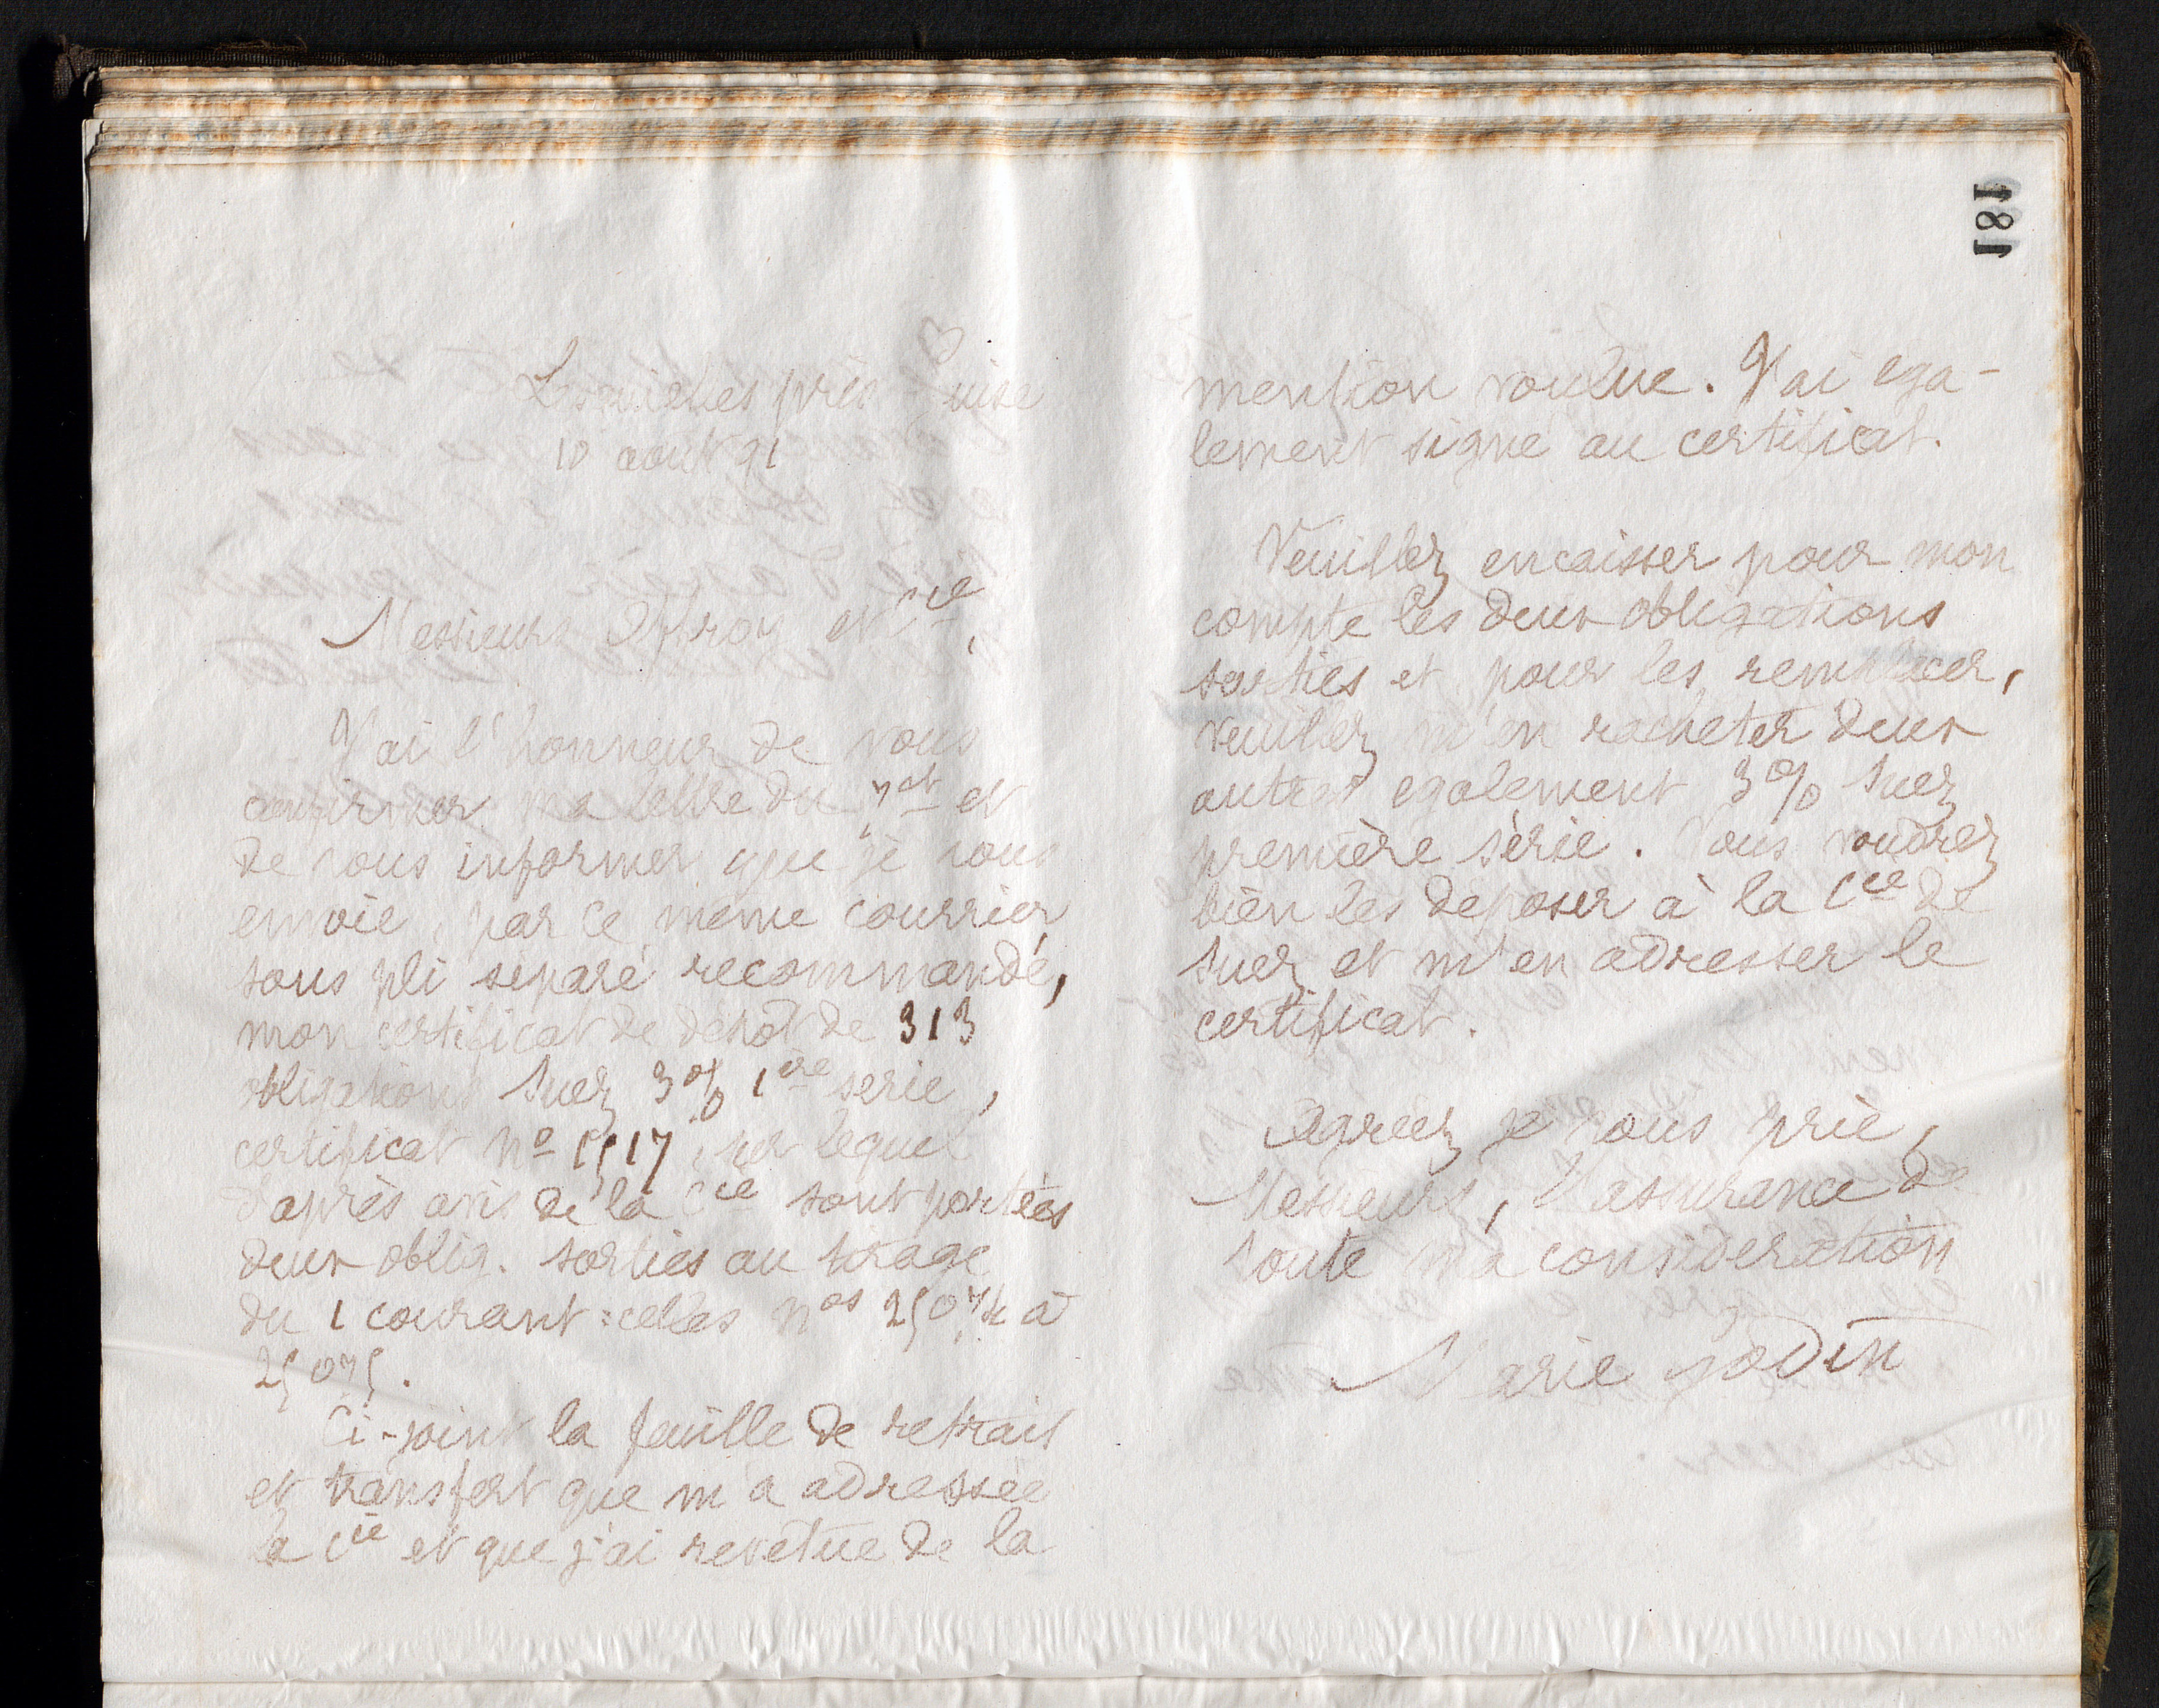 181
Lesquielles près Guise
10 août 91
Messieurs Offroy et Cie,
J'ai l'honneur de vous
confirmer ma lettre du 7 ct et
de vous informer que je vous
envoie, par ce même courrier,
sous pli séparé recommandé,
mon certificat de dépôt de 313
obligations Suez 3% 1ère série,
certificat no 1517, sur lequel
d'après avis de la Cie sont portées
deux oblig. sorties au tirage
du 1 courant : celles nos 25074 à
25075.
Ci-joint la feuille de retrait
et transfert que m'a adressée
la Cie et que j'ai revêtue de la
mention voulue. J'ai éga-
lement signé au certificat.
Veuillez encaisser pour mon
compte les deux obligations
sorties et pour les remplacer,
veuillez m'en racheter deux
autres également 3% Suez
première série. Vous voudrez
bien les déposer à la Cie de
Suez et m'en adresser le
certificat.
Agréez je vous prie,
Messieurs, l'assurance de
toute ma considération
Marie Godin